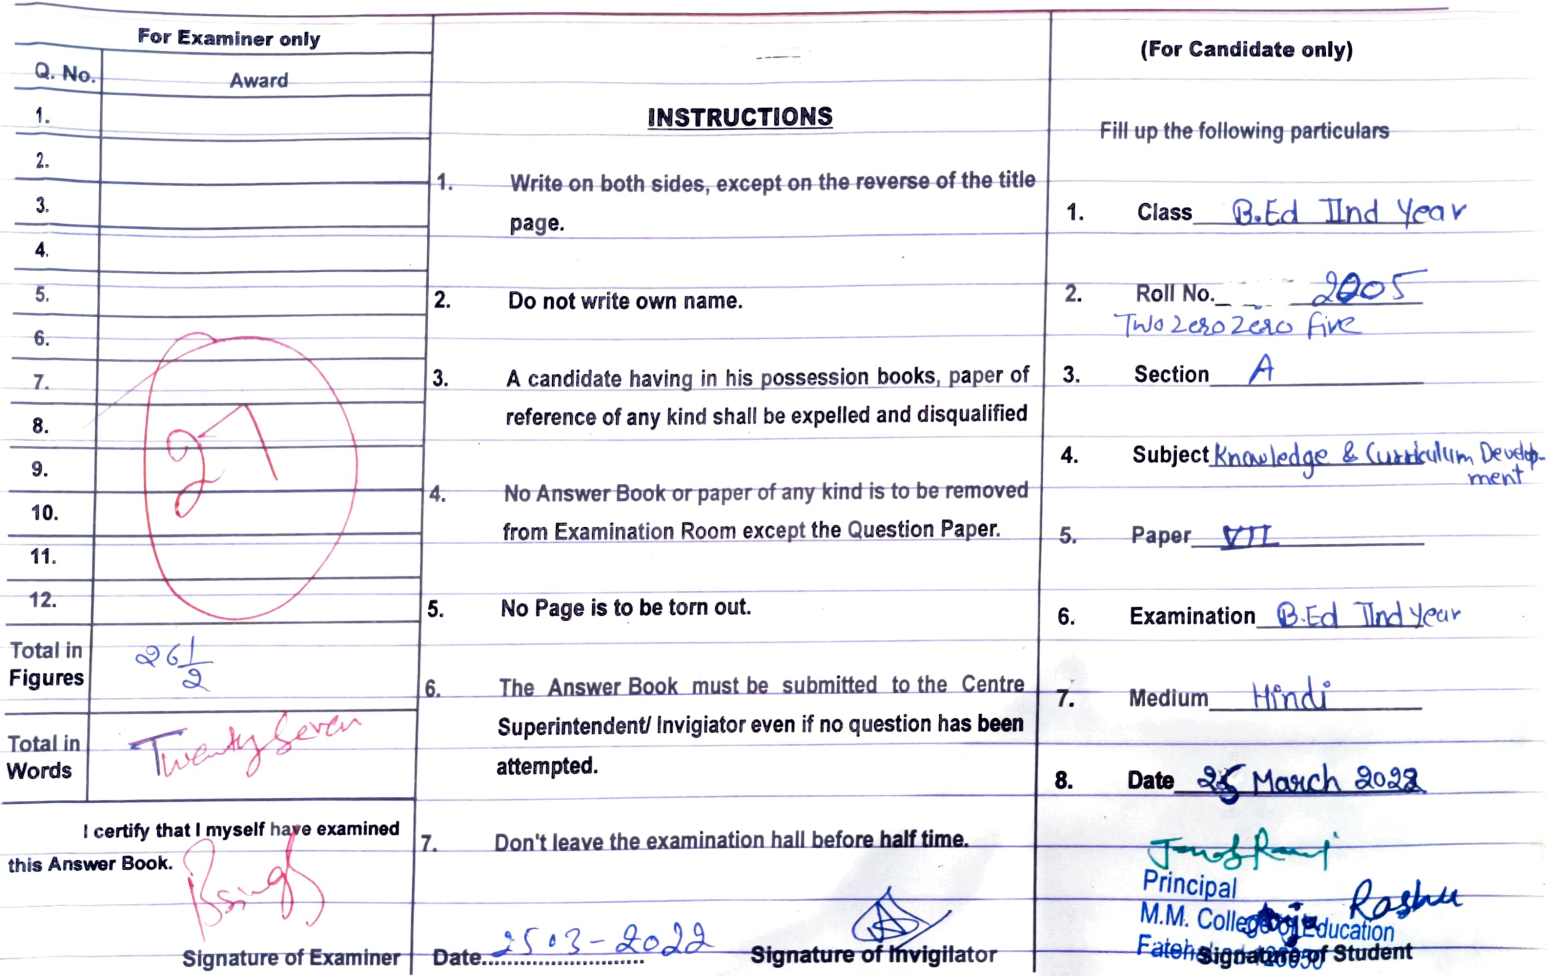 For Examiner only
Q. No.
Award
1.
2.
3.
4.
5.
6.
7.
8.
9.
10.
11.
12.
27
Total in
Figures
26 1/2
Total in
Words
Twenty Seven
I certify that I myself have examined
this Answer Book.
Signature of Examiner
INSTRUCTIONS
1. Write on both sides, except on the reverse of the title
page.
2. Do not write own name.
3. A candidate having in his possession books, paper of
reference of any kind shall be expelled and disqualified
4. No Answer Book or paper of any kind is to be removed
from Examination Room except the Question Paper.
5. No Page is to be torn out.
6. The Answer Book must be submitted to the Centre
Superintendent/ Invigiator even if no question has been
attempted.
7. Don't leave the examination hall before half time.
Date 25.03-2022
Signature of Invigilator
(For Candidate only)
Fill up the following particulars
1. Class B.Ed IInd Year
2. Roll No. 2005
Two Zero Zero Five
3. Section A
4. Subject Knowledge & Curriculum Develop-
ment
5. Paper VII
6. Examination B.Ed IInd Year
7. Medium Hindi
8. Date 25 March 2022
Principal
M.M. College of Education
Rashu
Signature of Student